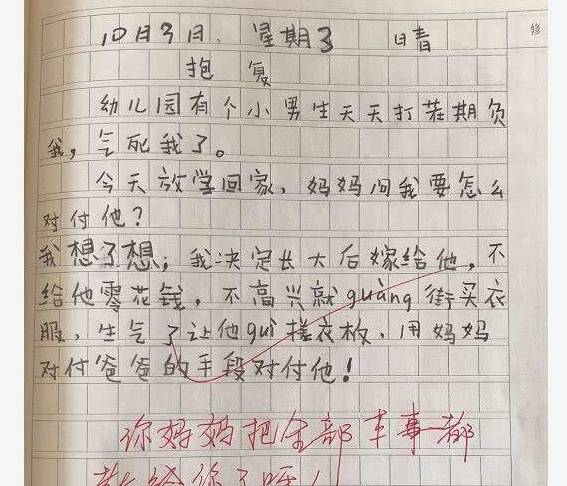 修
10月3日、 星期3 晴
抱 复
幼儿园有个小男生天天打茬期负
我，气死我了。
今天放学回家，妈妈问我要怎么
对付他？
我想了想；我决定长大后嫁给他，不
给他零花钱，不高兴就guàng街买衣
服，生气了让他guì搓衣板、用妈妈
对付爸爸的手段对付他！
你妈妈把全部本事都
教给你了呀！